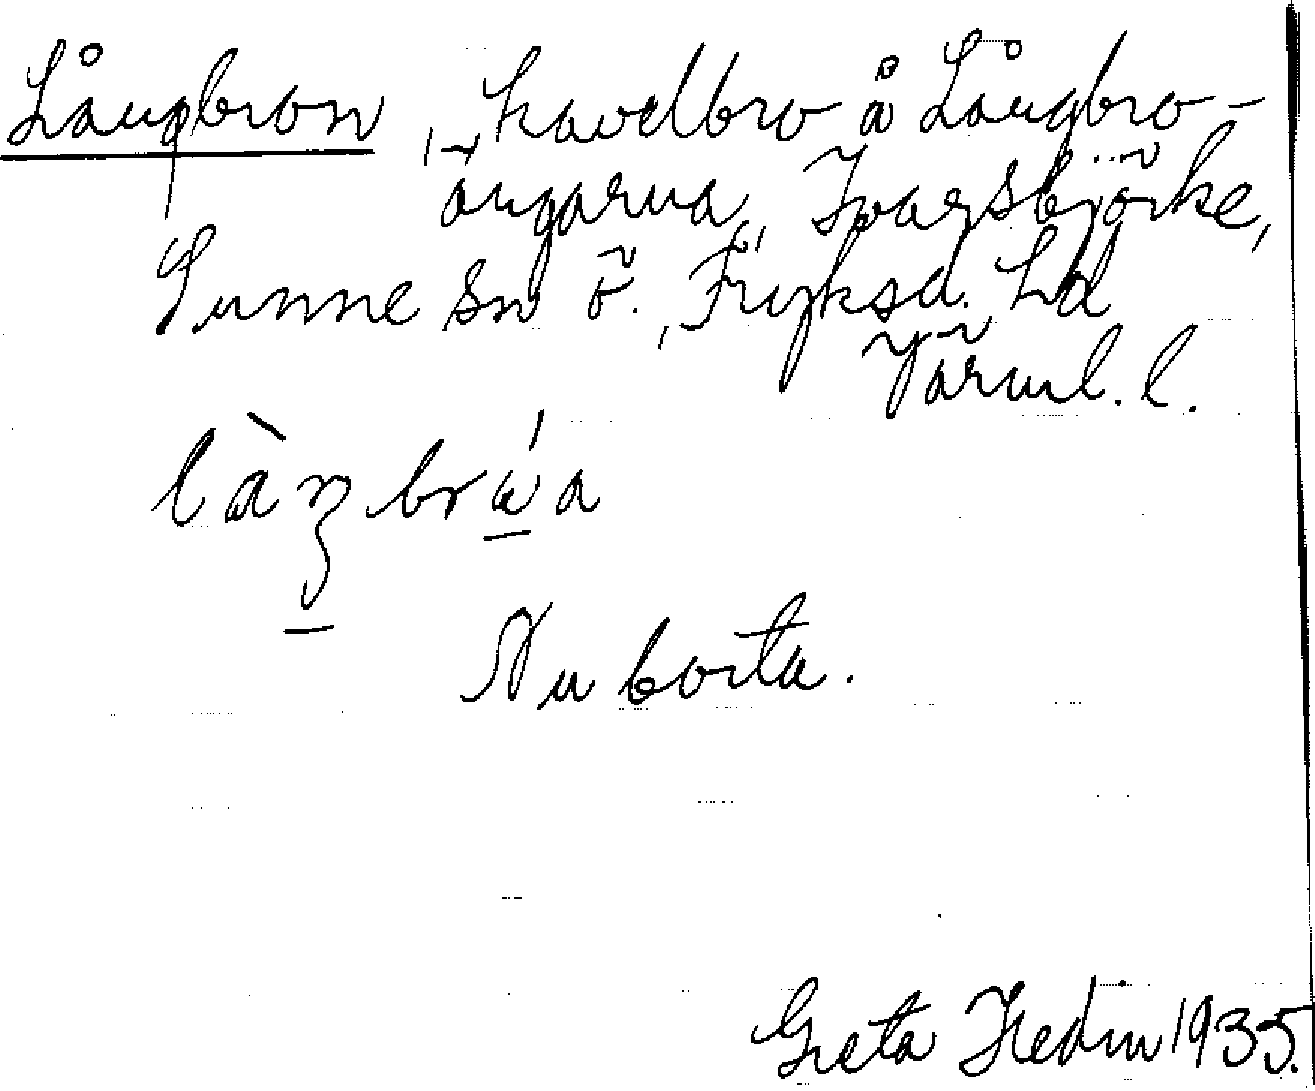 Långbron, kavelbro å Långbro-
ängarna, Ivarsbjörke,
Sunne sn ö., Fryksd. hd
Värml. l.
làŋbrẃa
Nu borta.
Greta Hedin 1935.